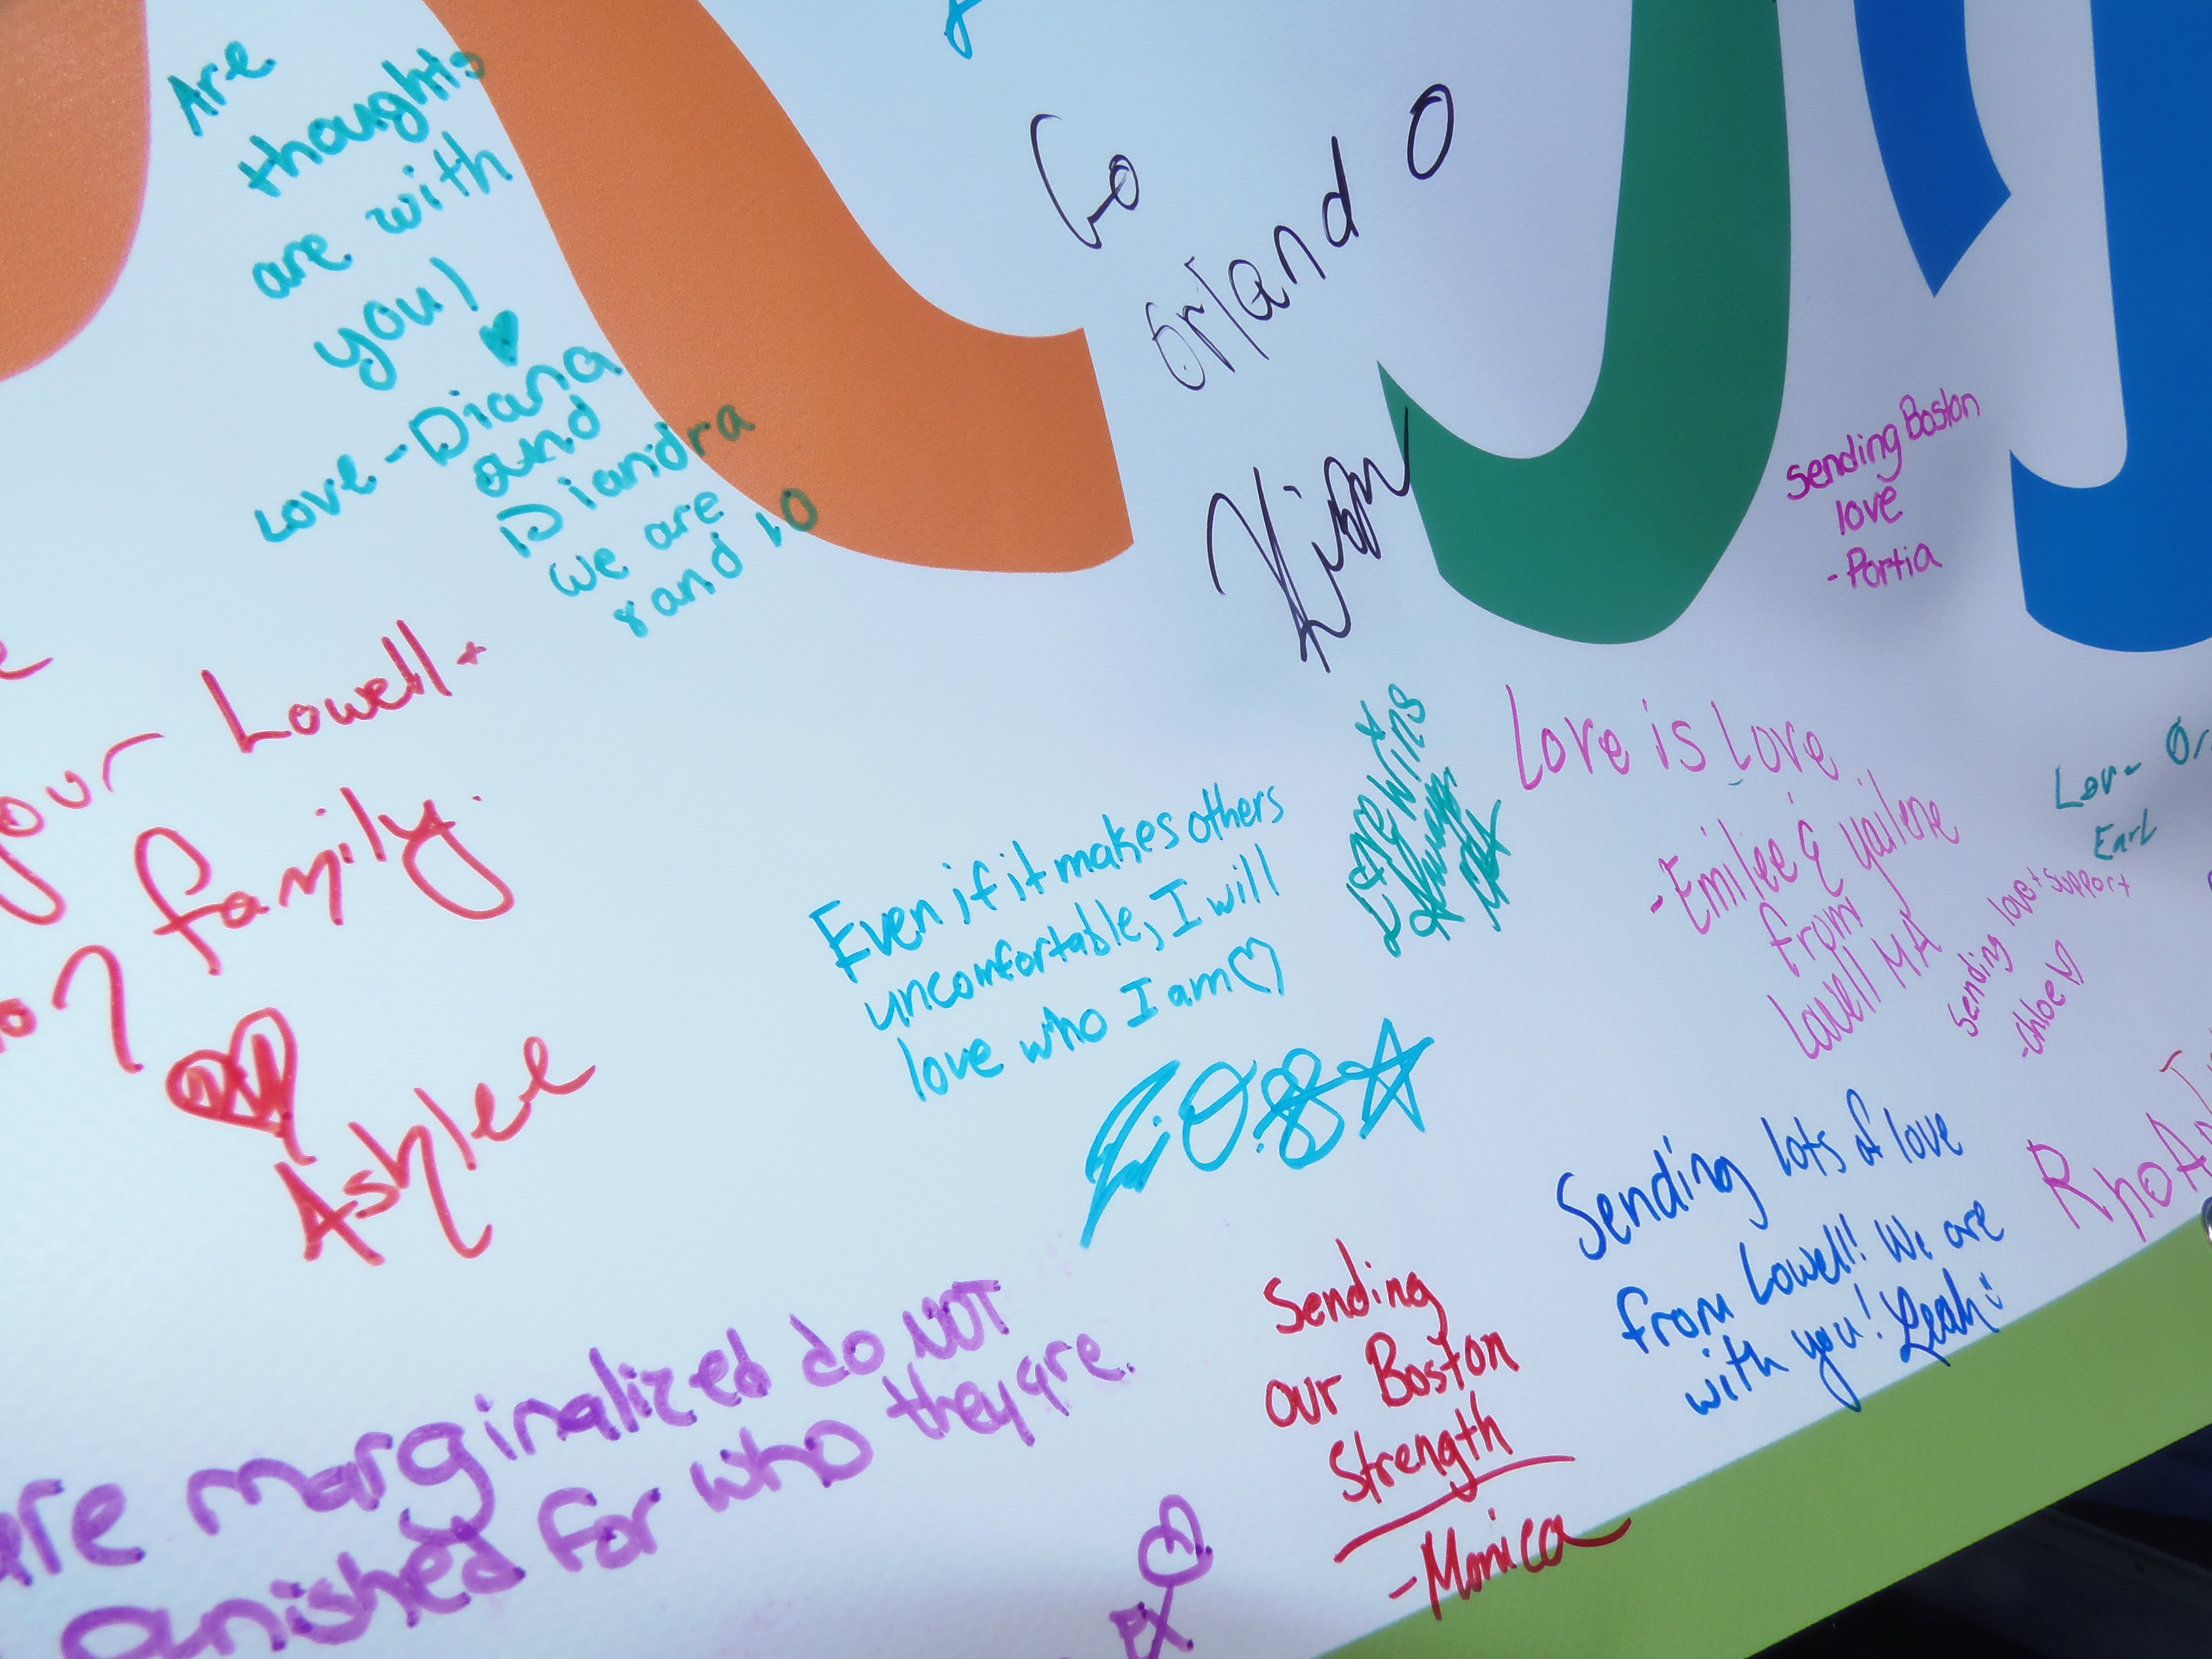 Are
thoughts
are with
you!
Love - Diana
and
Diandra
we are
rand 10
Go
Orland O
Kim
sending Boston
love
- Portia
your Lowell
family.
Ashlee
Even if it makes others
uncomfortable, I will
love who I am
Love wins
Love is Love
- Emilee & Yailene
from
Lowell MA
Earl
Sending love + support
- Chloe
Sending lots of love
from Lowell! We are
with you! Leah
Sending
our Boston
Strength
- Monica
are marginalized do NOT
punished for who they are.